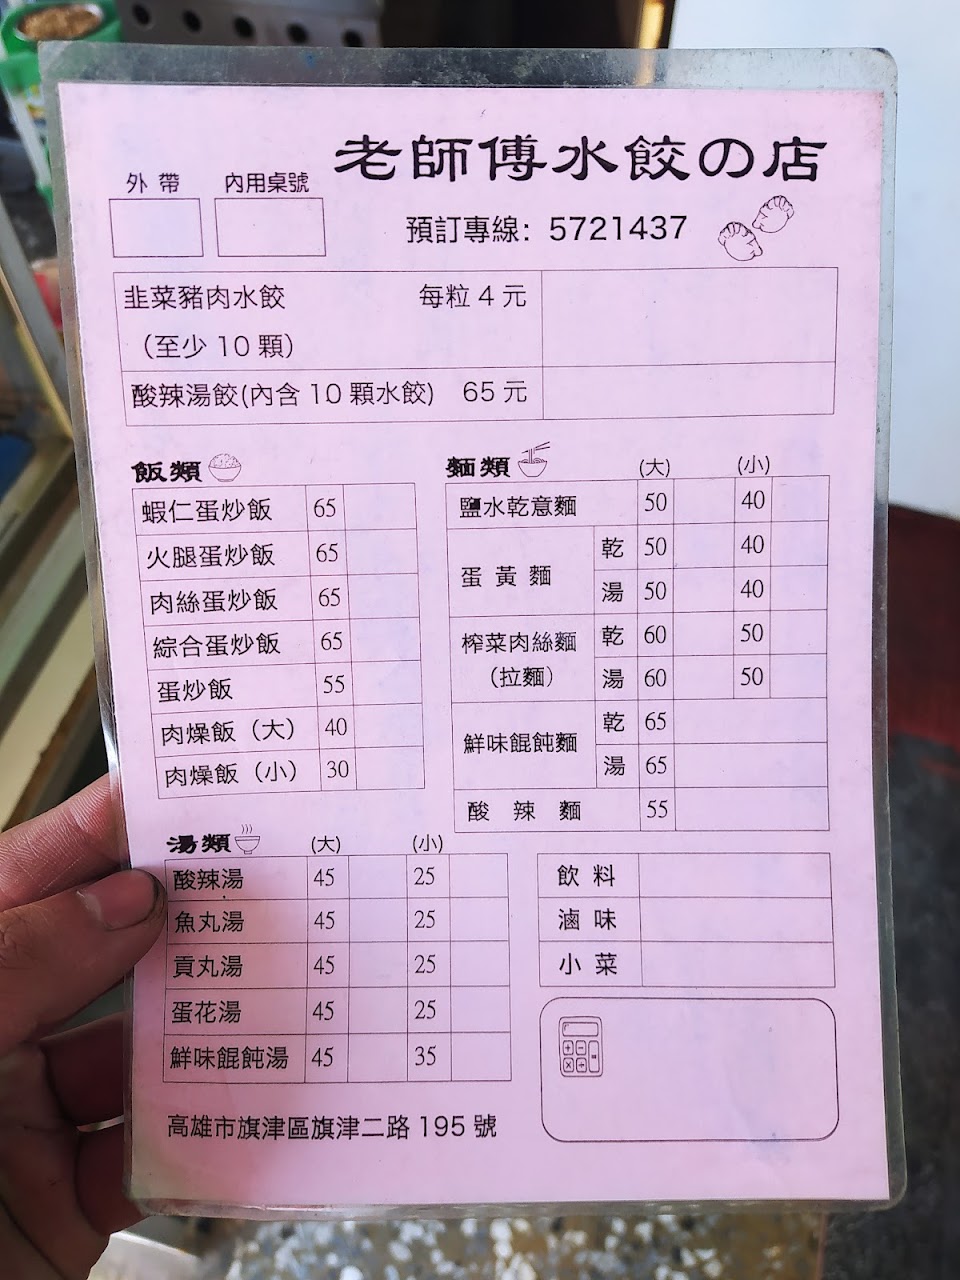 老師傅水餃の店
外帶 內用桌號
預訂專線: 5721437
韭菜豬肉水餃 每粒 4 元
(至少 10 顆)
酸辣湯餃(內含 10 顆水餃) 65 元
飯類
蝦仁蛋炒飯 65
火腿蛋炒飯 65
肉絲蛋炒飯 65
綜合蛋炒飯 65
蛋炒飯 55
肉燥飯（大） 40
肉燥飯（小） 30
麵類 (大) (小)
鹽水乾意麵 50 40
蛋黃麵 乾 50 40
湯 50 40
榨菜肉絲麵 乾 60 50
（拉麵） 湯 60 50
鮮味餛飩麵 乾 65
湯 65
酸辣麵 55
湯類 (大) (小)
酸辣湯 45 25
魚丸湯 45 25
貢丸湯 45 25
蛋花湯 45 25
鮮味餛飩湯 45 35
飲料
滷味
小菜
高雄市旗津區旗津二路 195 號